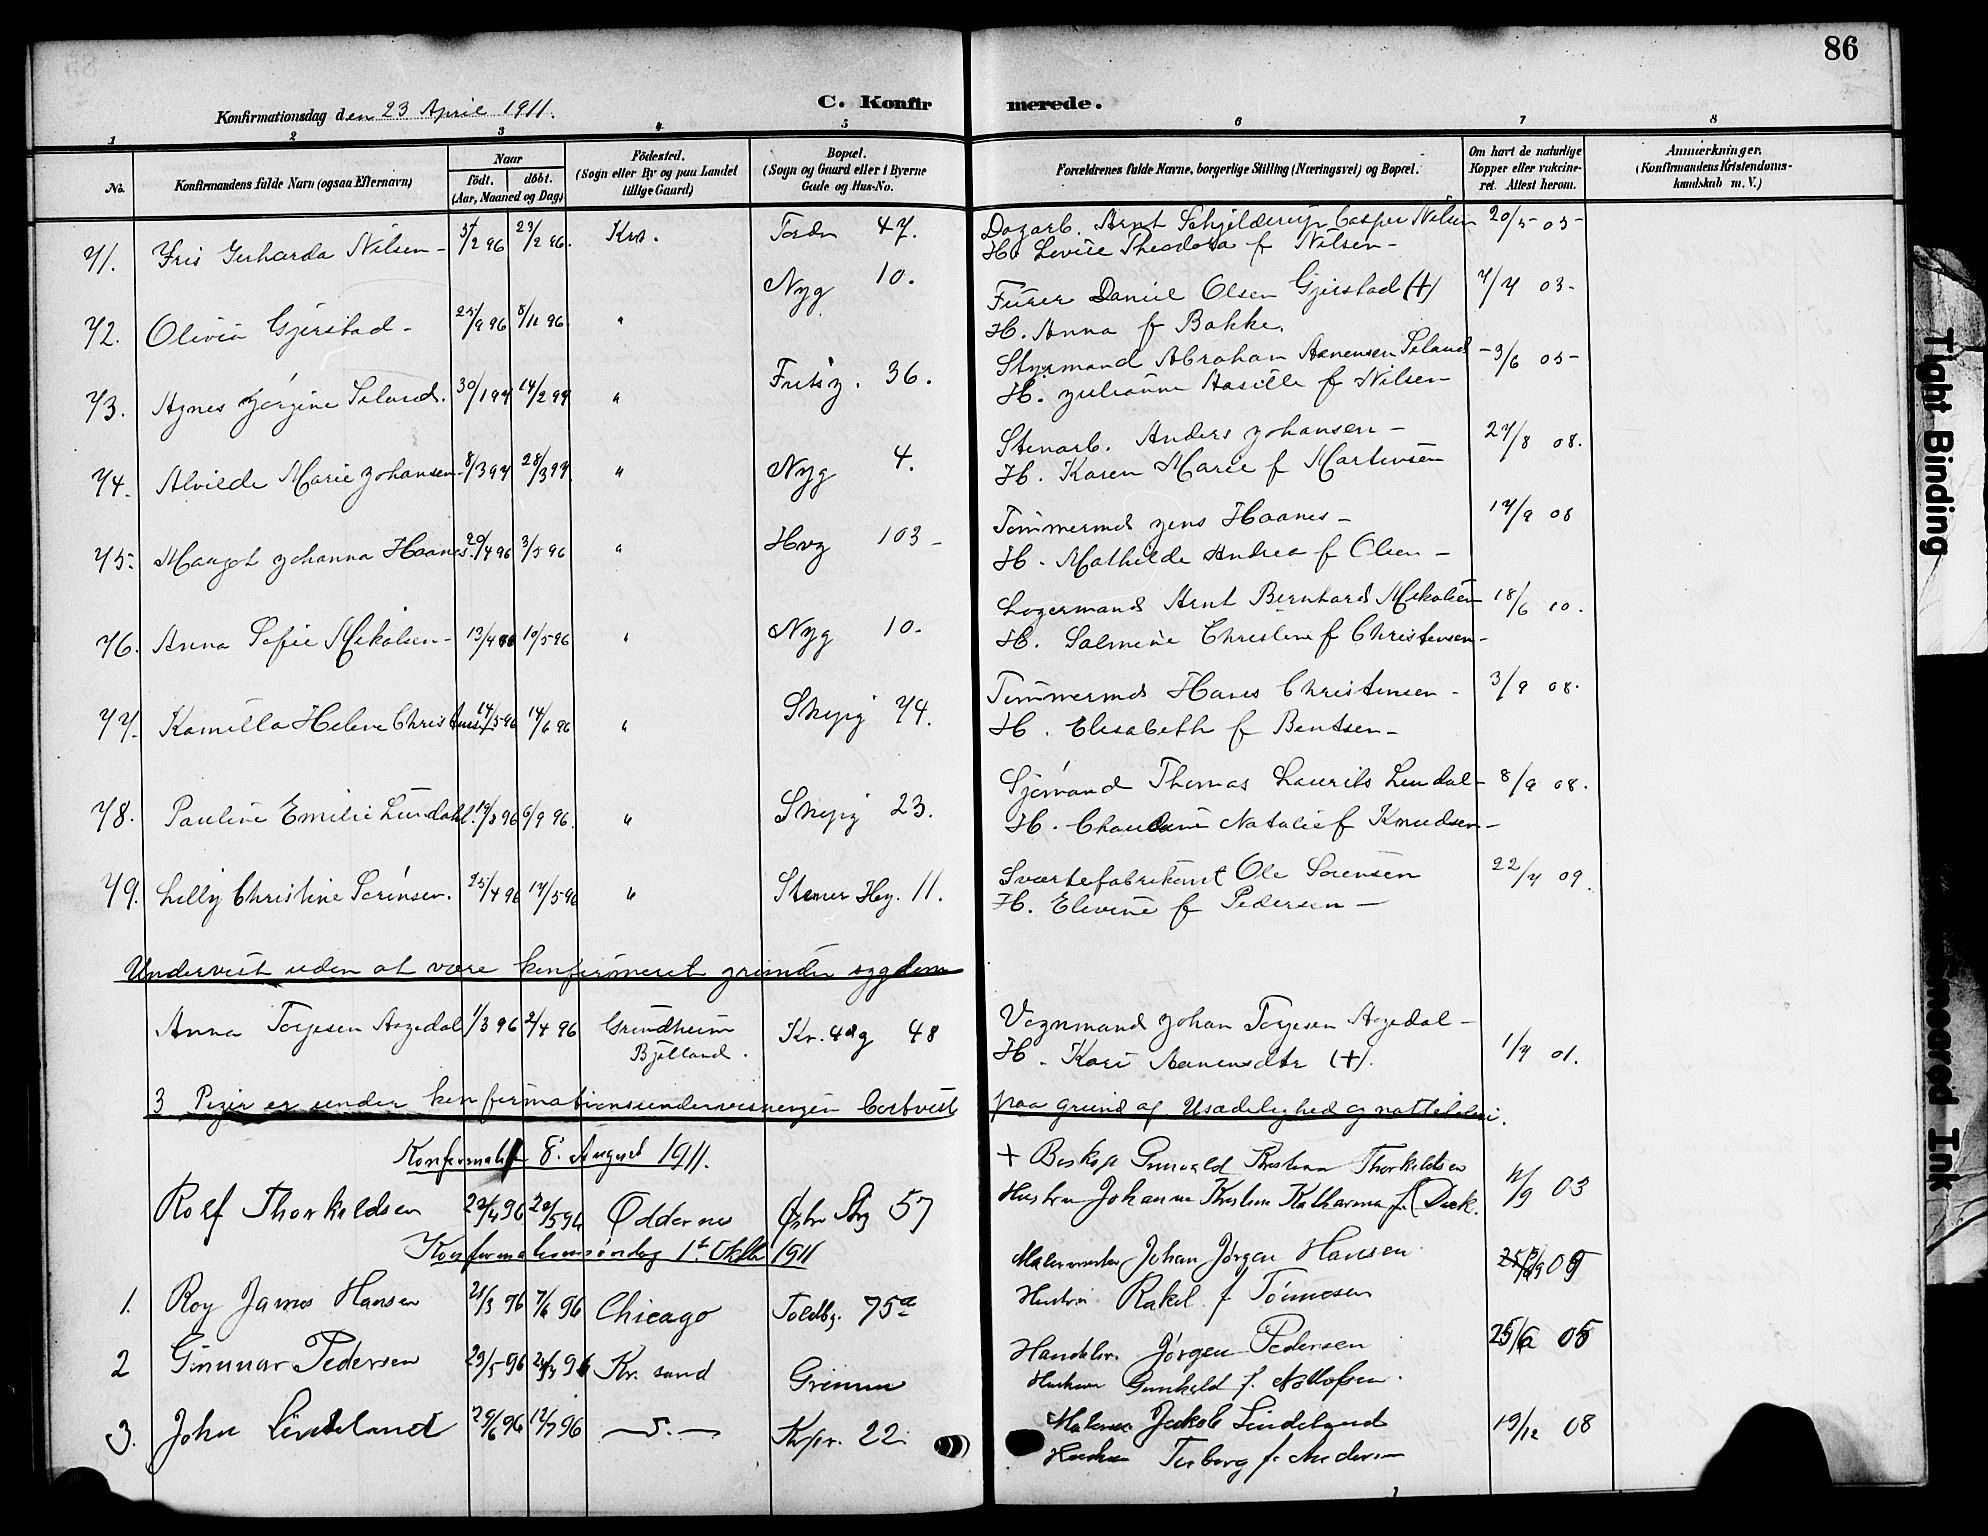 86
Konfirmationsdag den 23 April 1911.
C. Konfirmerede.
1 2 3 4 5 6 7 8
No.
Konfirmandens fulde Navn (ogsaa Efternavn)
Naar
födt. döbt.
(Aar, Maaned og Dag)
Födested.
(Sogn eller By og paa Landet
tillige Gaard)
Bopæl.
(Sogn og Gaard eller i Byerne
Gade og Hus-No.
Forældrenes fulde Navne, borgerlige Stilling (Næringsvei) og Bopæl.
Om havt de naturlige
Kopper eller vakcine-
ret. Attest herom.
Anmærkninger.
(Konfirmandens Kristendoms-
kundskab m. V.)
71. Iris Gerharda Nilsen - 3/2 96 23/2 96. Krs. Tordn 47. Dagarb. Arnt Schjelderup Casper Nilsen 20/5 05
H. Levise Theodora f Nilsen -
72. Olivia Gjerstad - 25/9 96 8/11 96 " Nyg 10. Furer Daniel Olsen Gjerstad (+) 7/7 03-
H. Anna f Bakke.
73. Agnes Jörgine Seland. 30/1 97 14/2 97 " Festn. 36. Styrmand Abraham Aanensen Seland - 3/6 05-
H. Julianne Aasille f Nilsen
74. Alvilde Marie Johansen 8/3 97 28/3 97 " Nyg 4. Stenarb. Anders Johansen - 27/8 08.
H. Karen Marie f Martinsen
75. Margot Johanna Haanes. 20/4 96 3/5 96 " Hvg 103- Tömmermd Jens Haanes - 17/9 08
H. Mathilde Andrea f Olsen -
76. Anna Sofie Mikalsen - 13/4 96 10/5 96 " Nyg 10. Lagermand Arnt Bernhard Mikalsen 18/6 10.
H. Salmine Christine f Christensen -
77. Kamilla Helene Christensen 14/5 96 14/6 96 " Skipg 74. Tömmermd Hans Christensen - 3/9 08.
H. Elisabeth f Bentsen -
78. Pauline Emilie Lundahl. 19/8 96 6/9 96. " Skipg 23. Sjömand Thomas Laurits Lundal - 8/9 08.
H. Natalie f Knudsen -
79. Lilly Christine Sörensen. 25/4 96 17/5 96 " Stener Hey. 11. Sværtefabrikant Ole Sörensen 22/7 09.
H. Elevine f Pedersen -
Undervist uden at være konfirmeret grundet sygdom
Anna Torjesen Aagedal 1/3 96 2/4 96 Grindheim Kr. 4dg 48 Vognmand Johan Torjesen Aagedal - 1/7 01.
Bjelland. H. Kari Aanensdtr (+).
3 Piger er under konfirmationsundervisningen bortvist paa grund af Usædelighed og natteleven.
Konfirmation 8. August 1911.
Rolf Thorkildsen 22/4 96 20/5 96 Oddernes Östre Strg 57 + Biskop Gunvald Kristian Thorkildsen 11/9 03
Hustru Johanne Kristine Katharina f. Dick.
Konfirmationssöndag 1ste Oktbr 1911
1. Roy James Hansen 21/3 96 7/6 96 Chicago Toldbg. 75a Malermester Johan Jørgen Hansen 09
Hustru Rakel f Tönnesen
2 Gunnar Pedersen 23/5 96 96 Kr. sand Grimm Handelsr. Jørgen Pedersen 25/6 05
Hustru Gunhild f. Nottofsen.
3. John Lindeland 29/6 96 12/7 96 - " - Krpr. 22 Maler Jakob Lindeland 19/12 08
Hustru Torborg f. Andersen
Tight Binding
Smeared Ink